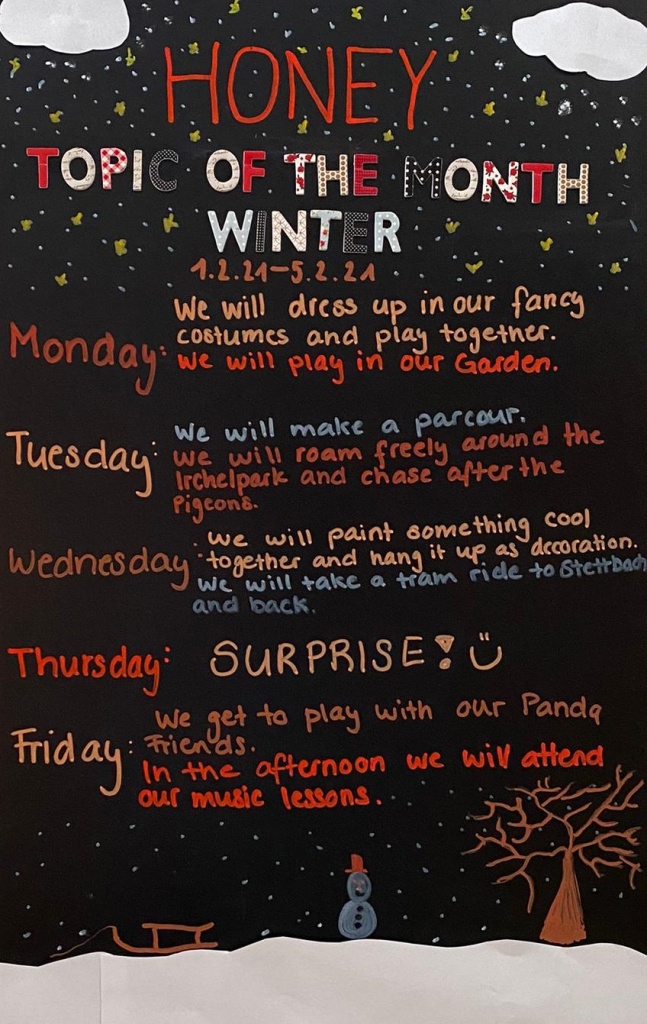 HONEY
TOPIC OF THE MONTH
WINTER
1.2.21-5.2.21
Monday: We will dress up in our fancy
costumes and play together.
We will play in our Garden.
Tuesday: We will make a parcour.
We will roam freely around the
Irchelpark and chase after the
Pigeons.
Wednesday: We will paint something cool
together and hang it up as decoration.
We will take a tram ride to Stettbach
and back.
Thursday: SURPRISE!
Friday: We get to play with our Panda
Friends.
In the afternoon we will attend
our music lessons.